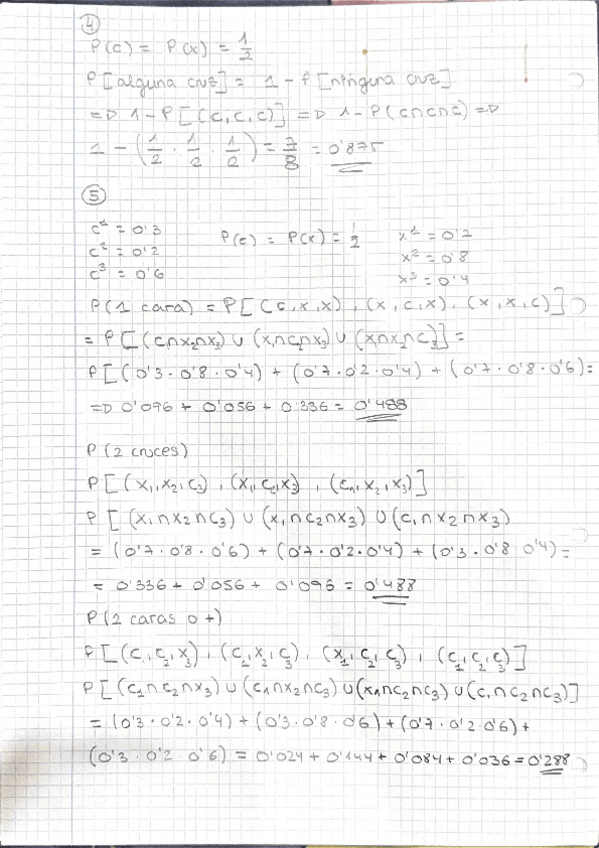 4
P(c) = P(x) = 1/2
P[alguna cruz] = 1 - P[ninguna cruz]
=D 1 - P[(c, c, c)] =D 1 - P(c∩c∩c) =D
1 - (1/2 · 1/2 · 1/2) = 7/8 = 0'875
5
c¹ = 0'3
c² = 0'2
c³ = 0'6
P(c) = P(x) = 1/2
x¹ = 0'2
x² = 0'8
x³ = 0'4
P(1 cara) = P[(c, x, x), (x, c, x), (x, x, c)]
= P[(c∩x₂∩x₃) ∪ (x₁∩c₂∩x₃) ∪ (x₁∩x₂∩c₃)] =
P[(0'3 · 0'8 · 0'4) + (0'7 · 0'2 · 0'4) + (0'7 · 0'8 · 0'6) =
=D 0'096 + 0'056 + 0'336 = 0'488
P(2 cruces)
P[(x₁, x₂, c₃), (x₁, c₂, x₃), (c₁, x₂, x₃)]
P[(x₁∩x₂∩c₃) ∪ (x₁∩c₂∩x₃) ∪ (c₁∩x₂∩x₃)
= (0'7 · 0'8 · 0'6) + (0'7 · 0'2 · 0'4) + (0'3 · 0'8 0'4) =
= 0'336 + 0'056 + 0'096 = 0'488
P(2 caras o +)
P[(c₁, c₂, x₃), (c₁, x₂, c₃), (x₁, c₂, c₃), (c₁, c₂, c₃)]
P[(c₁∩c₂∩x₃) ∪ (c₁∩x₂∩c₃) ∪ (x₁∩c₂∩c₃) ∪ (c₁∩c₂∩c₃)]
= (0'3 · 0'2 · 0'4) + (0'3 · 0'8 · 0'6) + (0'7 · 0'2 · 0'6) +
(0'3 · 0'2 0'6) = 0'024 + 0'144 + 0'084 + 0'036 = 0'288